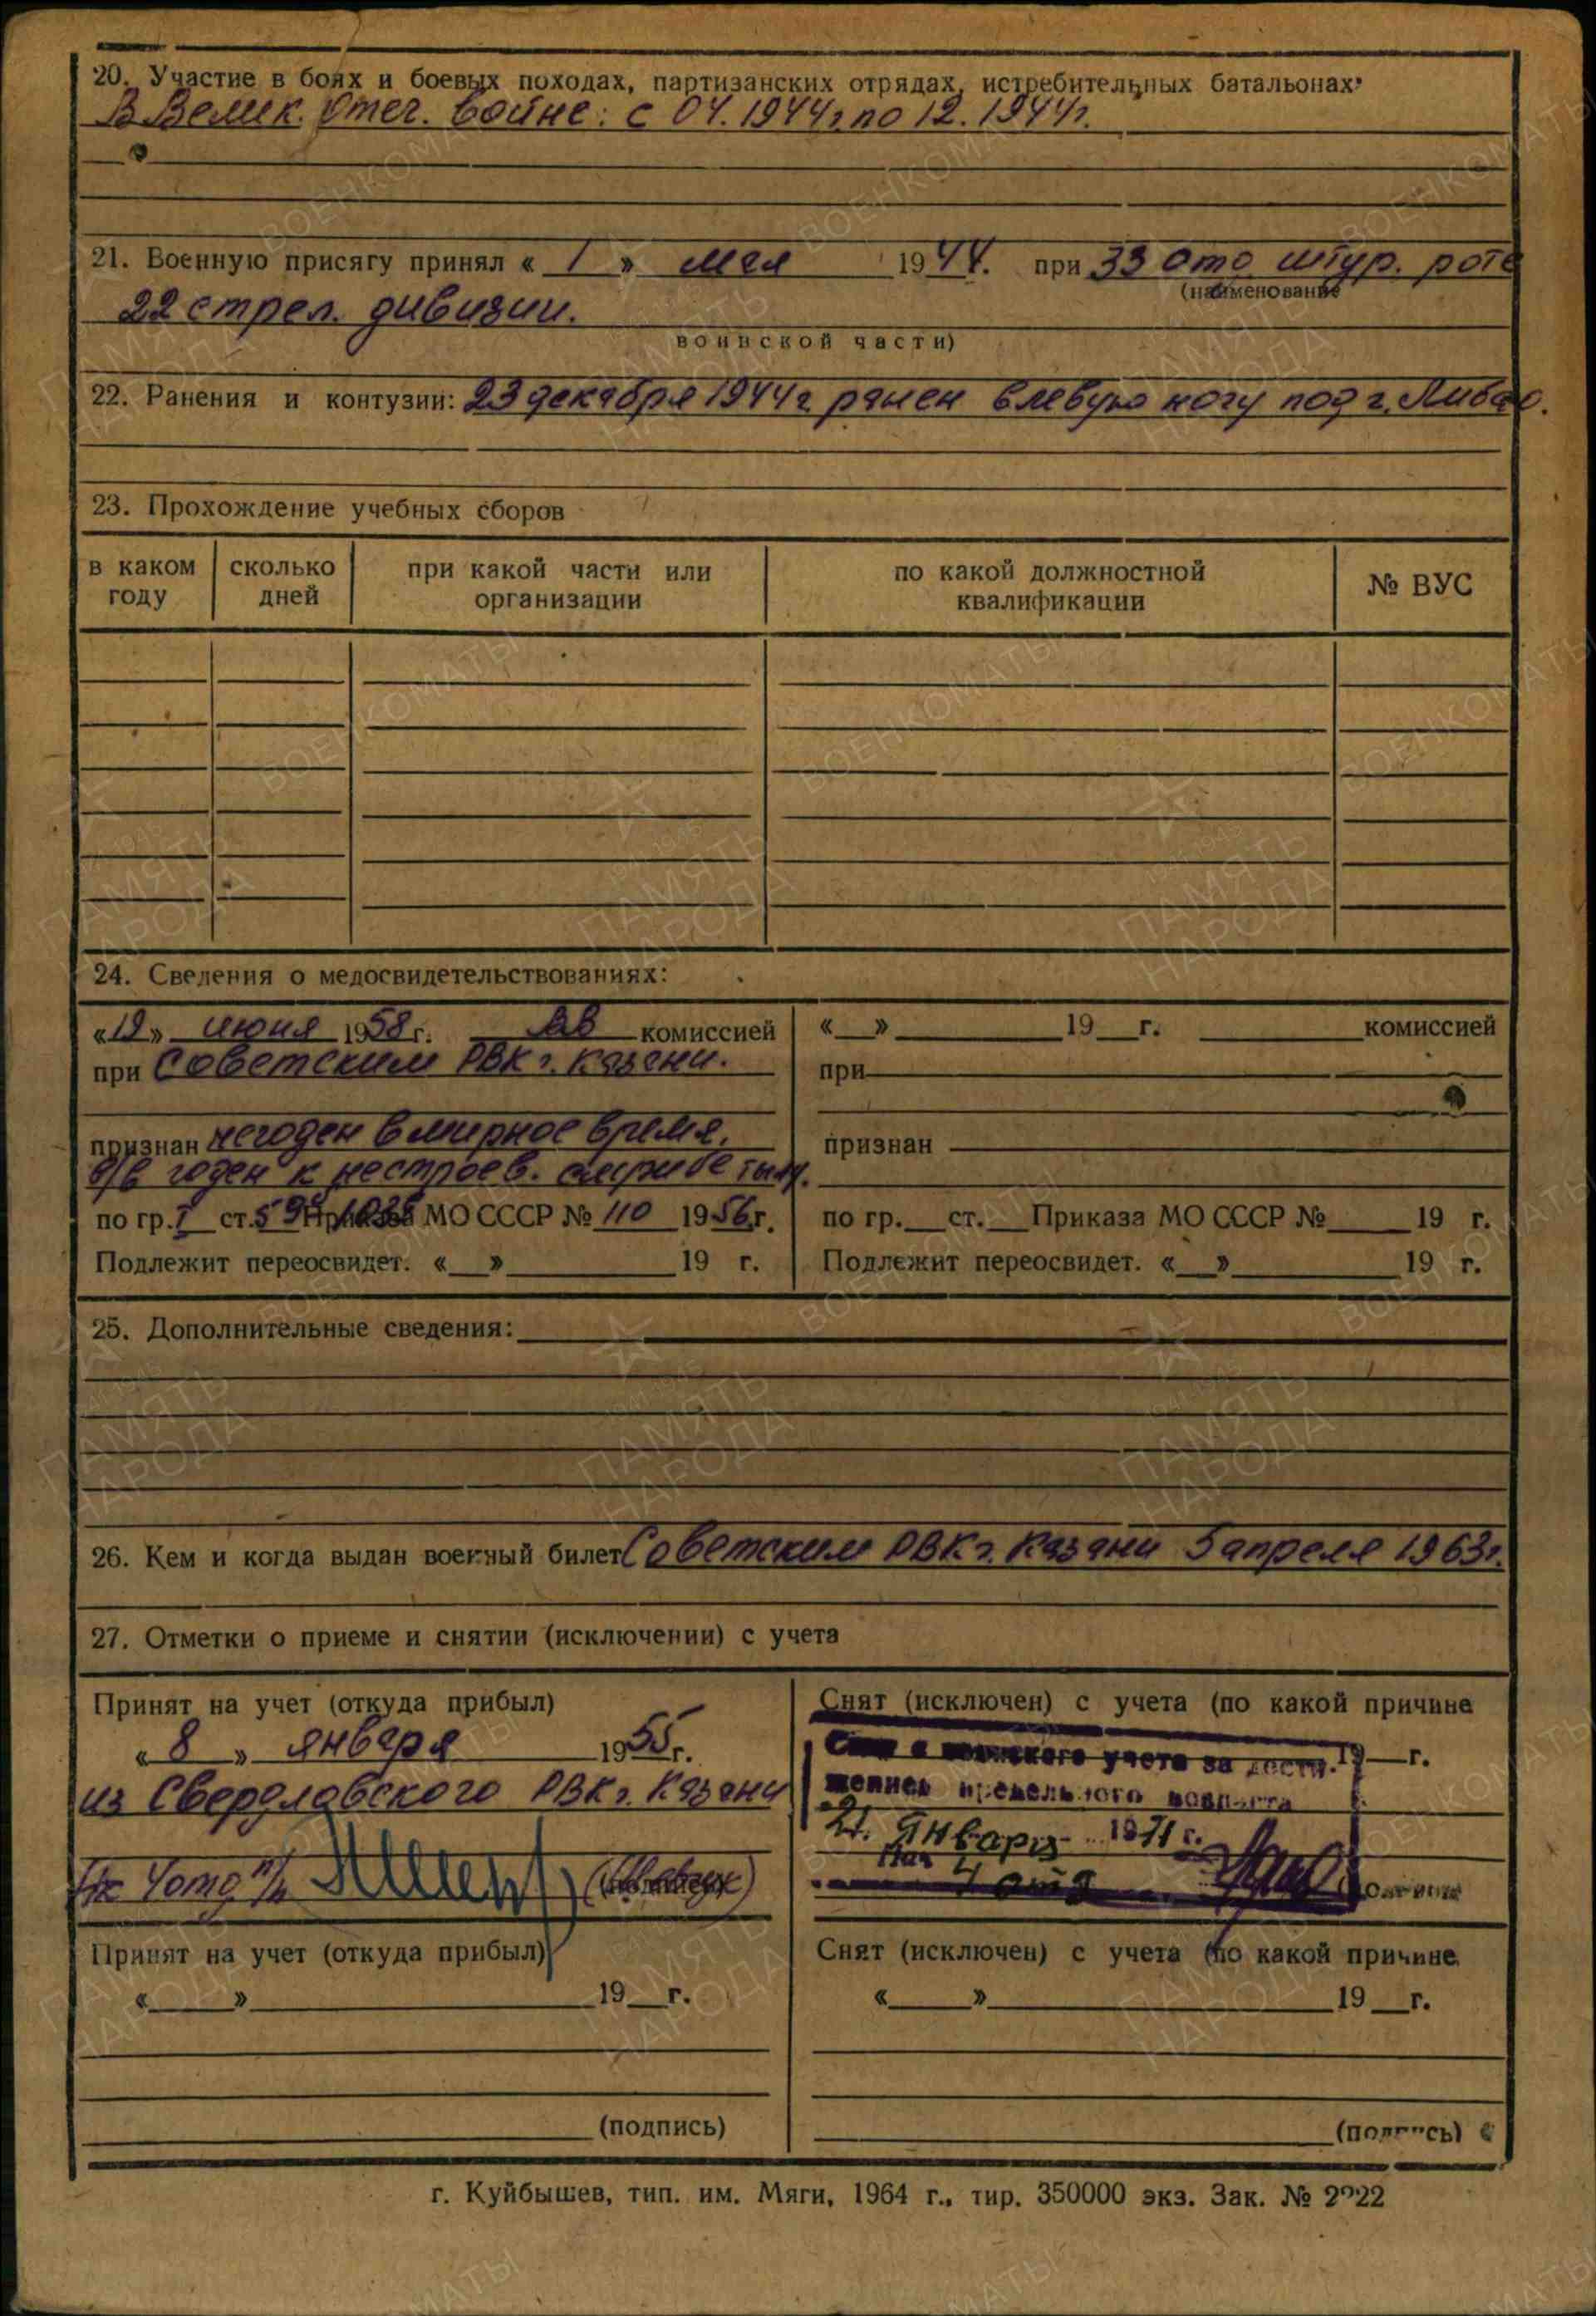 20. Участие в боях и боевых походах, партизанских отрядах, истребительных батальонах:
В Велик. Отеч. войне: с 04.1944г. по 12.1944г.
21. Военную присягу принял « 1 » мая 1944. при 33 отд. штур. роте
(наименование
22 стрел. дивизии.
воинской части)
22. Ранения и контузии: 23 декабря 1944г ранен в левую ногу под г. Либаво.
23. Прохождение учебных сборов
в каком году
сколько дней
при какой части или организации
по какой должностной квалификации
№ ВУС
24. Сведения о медосвидетельствованиях:
«19» июня 1958 г. комиссией
при Советским РВК г. Казани.
признан негоден в мирное время,
в/в годен к нестроев. службе тылу.
по гр. I ст. 59 МО СССР № 110 1956 г.
Подлежит переосвидет. «__»______19 г.
«__»______19__г. ______комиссией
при
признан
по гр.__ст.__Приказа МО СССР №____19 г.
Подлежит переосвидет. «__»______19 г.
25. Дополнительные сведения:
26. Кем и когда выдан военный билет Советским РВК г. Казани 5 апреля 1963г.
27. Отметки о приеме и снятии (исключении) с учета
Принят на учет (откуда прибыл)
« 8 » января 1955 г.
из Свердловского РВК г. Казани
Снят (исключен) с учета (по какой причине
19__г.
Снят с воинского учета за дости-
жением предельного возраста
21. Января 1971 г.
Нач 4 отд
Принят на учет (откуда прибыл)
«____»__________19__г.
(подпись)
Снят (исключен) с учета (по какой причине
«____»__________19__г.
(подпись)
г. Куйбышев, тип. им. Мяги, 1964 г., тир. 350000 экз. Зак. №
ПАМЯТЬ НАРОДА
ВОЕНКОМАТЫ
1941-1945